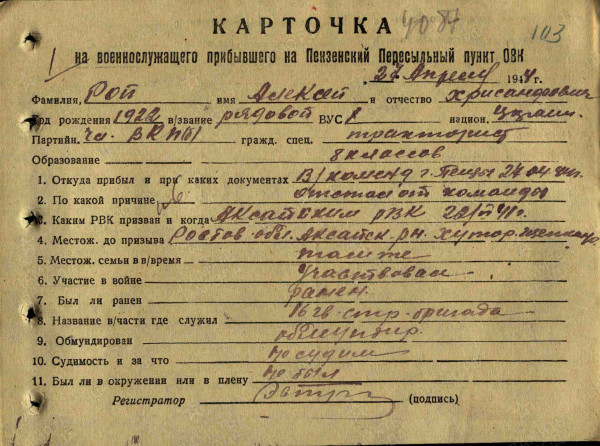 КАРТОЧКА 4087 103
на военнослужащего прибывшего на Пензенский Пересыльный пункт ОВК
27 Апреля 1944 г.
Фамилия, Роп имя Алексей и отчество Хрисанфович
Год рождения 1922 в/звание рядовой ВУС 1 национ.
Партийн. чл. ВКП(б) гражд. спец. тракторист
Образование 8 классов
1. Откуда прибыл и при каких документах В/коменд г. Пензы 27.04.44г.
2. По какой причине отстал от команды
3. Каким РВК призван и когда Аксайским РВК 41г.
4. Местож. до призыва Ростов. обл. Аксайск. рн. хутор
5. Местож. семьи в в/время там же
6. Участие в войне участвовал
7. Был ли ранен ранен
8. Название в/части где служил 16 гв. стр. бригада
9. Обмундирован обмундир.
10. Судимость и за что не судим
11. Был ли в окружении или в плену не был
Регистратор (подпись)